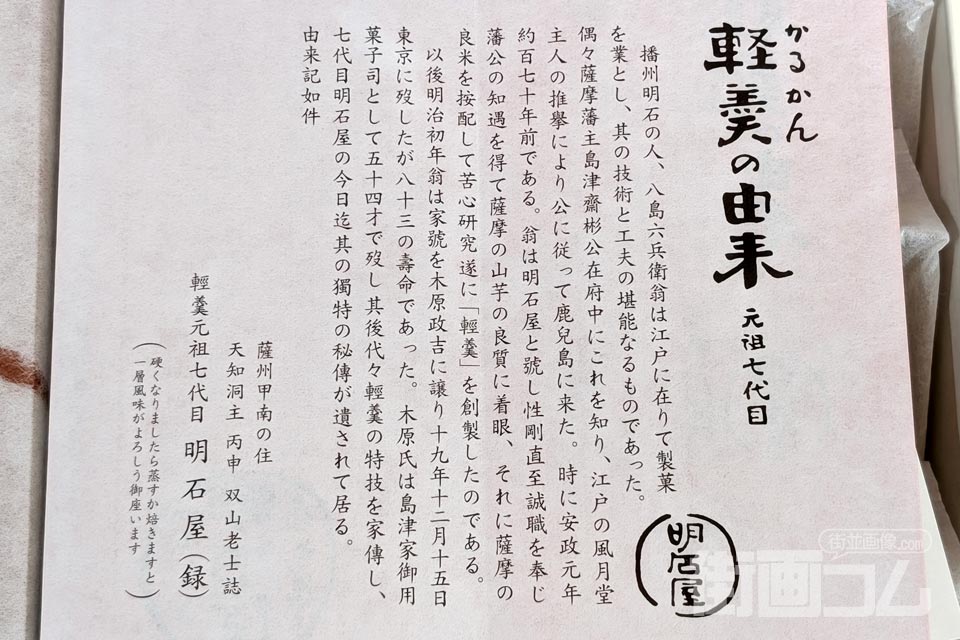 かるかん
軽羹の由来 元祖七代目
明石屋
播州明石の人、八島六兵衛翁は江戸に在りて製菓
を業とし、其の技術と工夫の堪能なるものであった。
偶々薩摩藩主島津齋彬公在府中にこれを知り、江戸の風月堂
主人の推擧により公に従って鹿兒島に来た。時に安政元年
約百七十年前である。翁は明石屋と號し性剛直至誠職を奉じ
藩公の知遇を得て薩摩の山芋の良質に着眼、それに薩摩の
良米を按配して苦心研究 遂に「輕羹」を創製したのである。
以後明治初年翁は家號を木原政吉に讓り十九年十二月十五日
東京に歿したが八十三の壽命であった。木原氏は島津家御用
菓子司として五十四才で歿し其後代々輕羹の特技を家傳し、
七代目明石屋の今日迄其の獨特の秘傳が遺されて居る。
由来記如件
薩州甲南の住
天知洞主 丙申 双山老士誌
輕羹元祖七代目 明石屋(録)
(硬くなりましたら蒸すか焙きますと
一層風味がよろしう御座います)
街並画像.com
街画コム